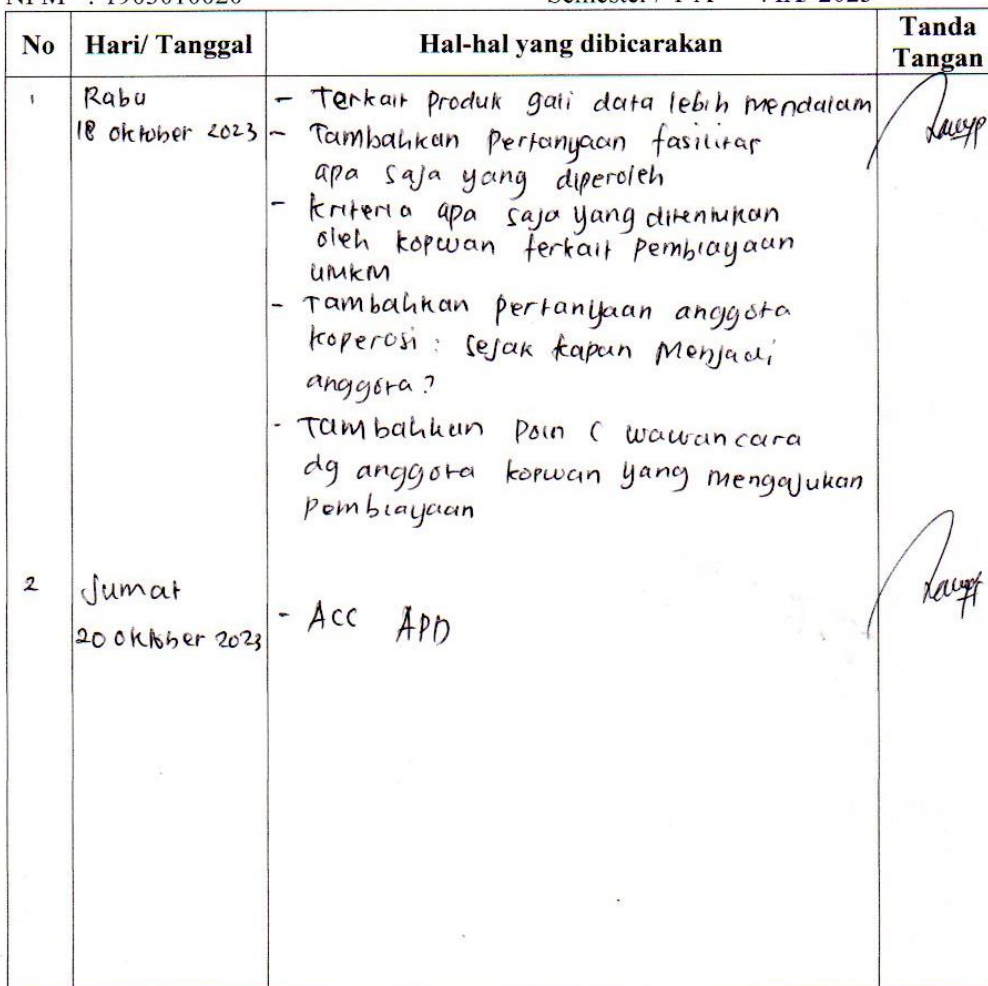 No Hari/ Tanggal Hal-hal yang dibicarakan Tanda Tangan
1 Rabu - Terkait produk gali data lebih mendalam
18 Oktober 2023 - Tambahkan Pertanyaan fasilitas
apa saja yang diperoleh
- kriteria apa saja yang ditentukan
oleh kopwan terkait pembiayaan
UMKM
- Tambahkan pertanyaan anggota
koperasi : sejak kapan Menjadi
anggota ?
- Tambahkan Poin C wawancara
dg anggota kopwan yang mengajukan
Pembiayaan
2 Jumat
- ACC APD
20 Oktober 2023